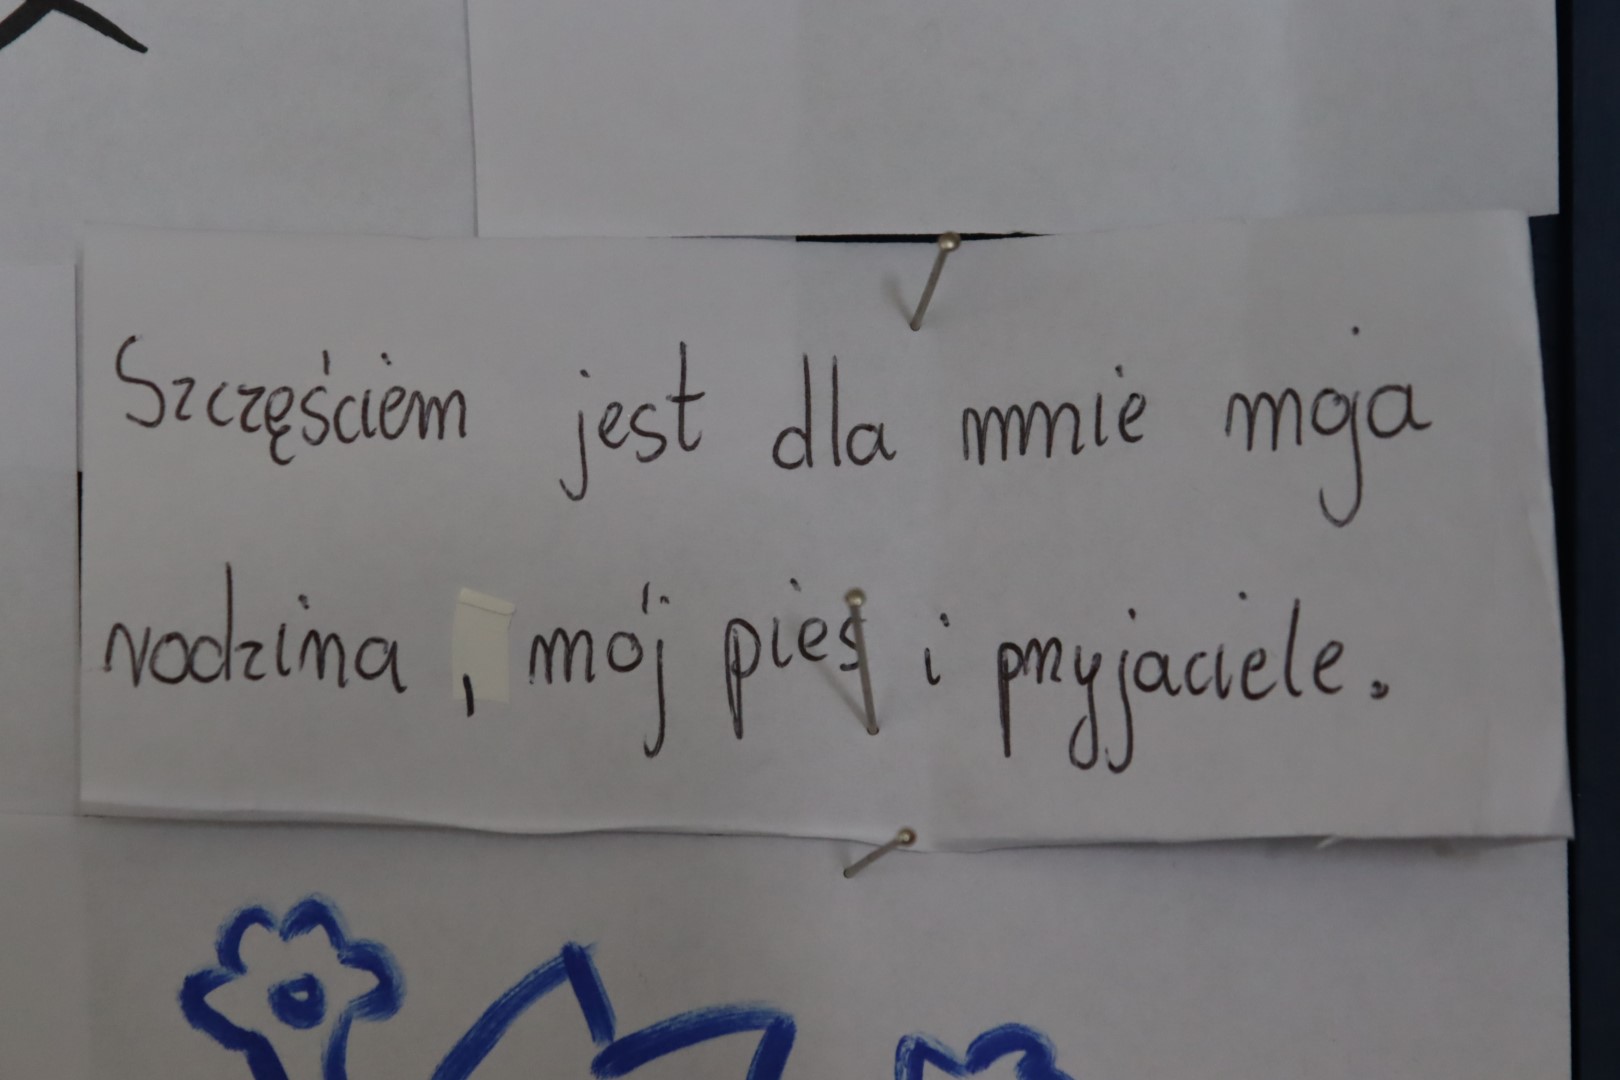 Szczęściem jest dla mnie moja
rodzina, mój pies i przyjaciele.